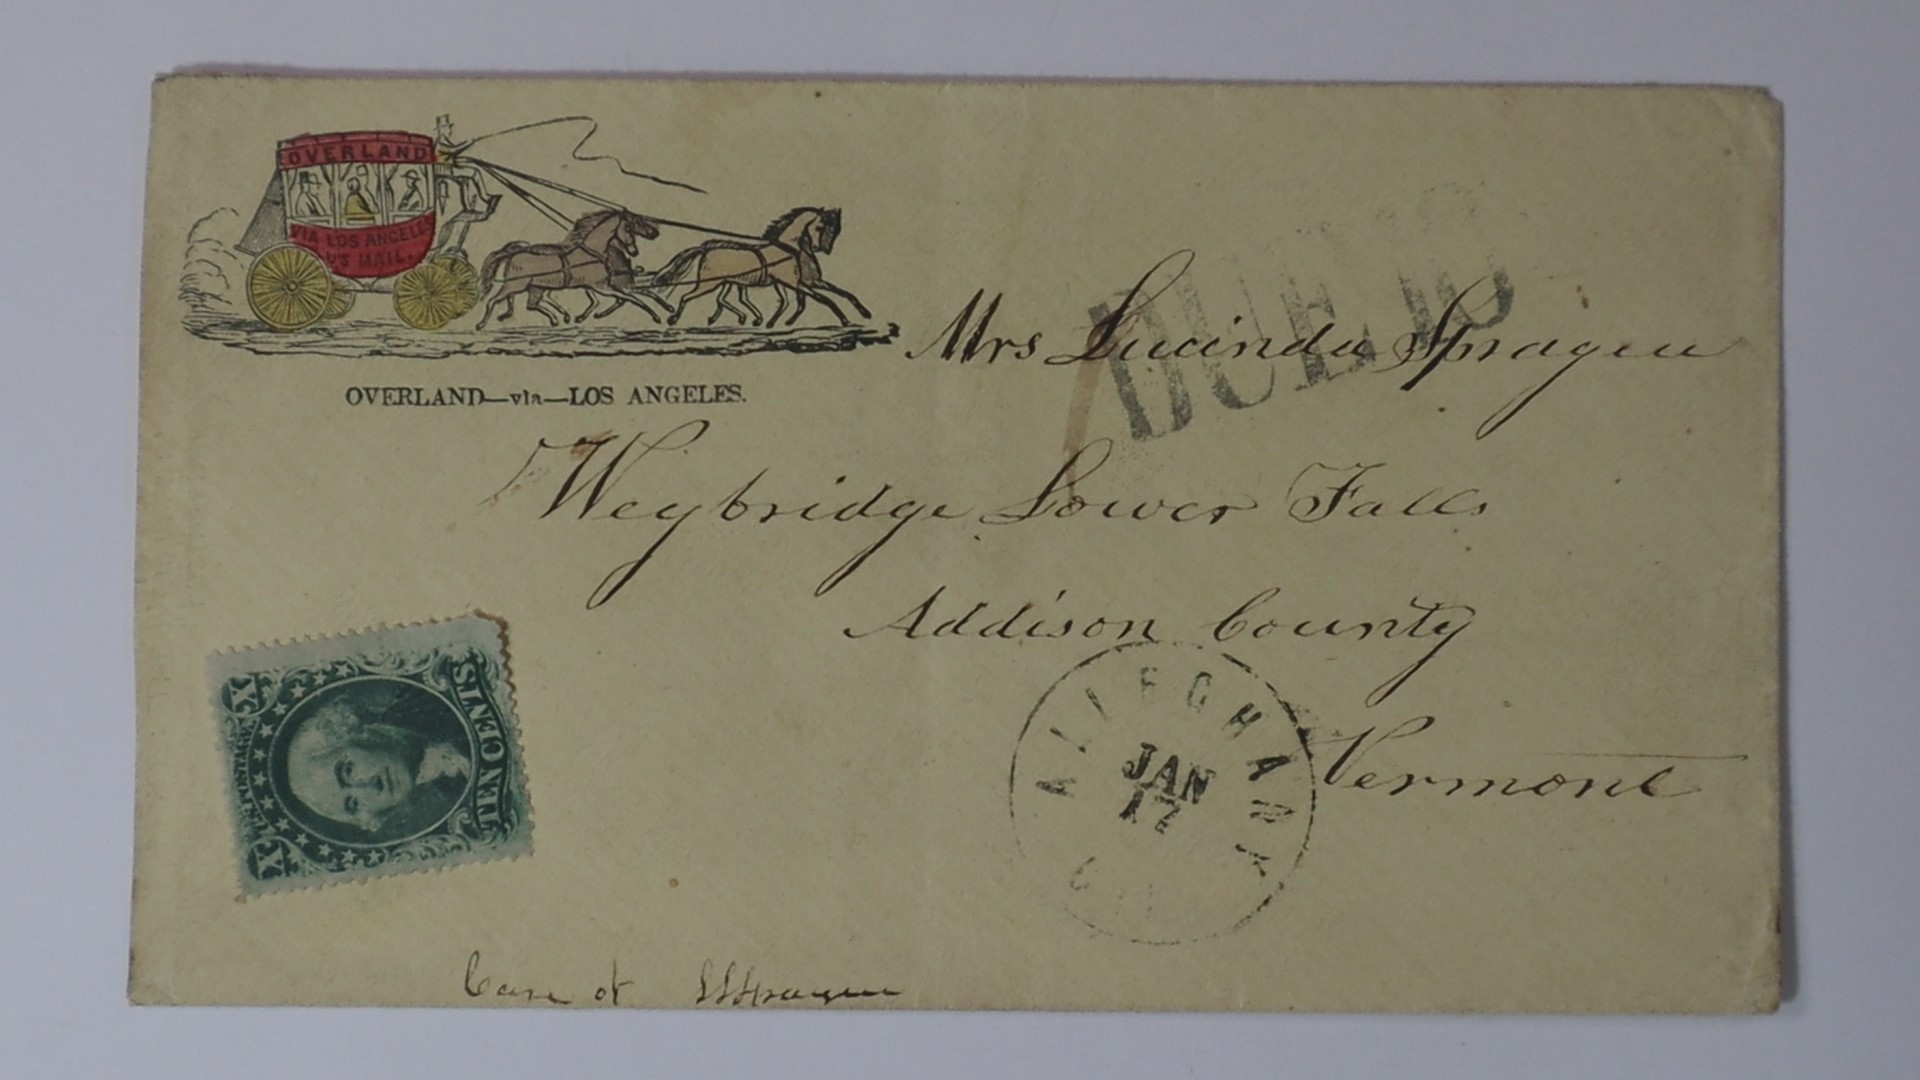 OVERLAND
VIA LOS ANGELES
US MAIL.
OVERLAND—via—LOS ANGELES.
DUE 10
Mrs Lucinda Sprague
Weybridge Lower Falls
Addison County
Vermont
U.S. POSTAGE
X X
TEN CENTS
ALLEGHANY
JAN
17
Care of